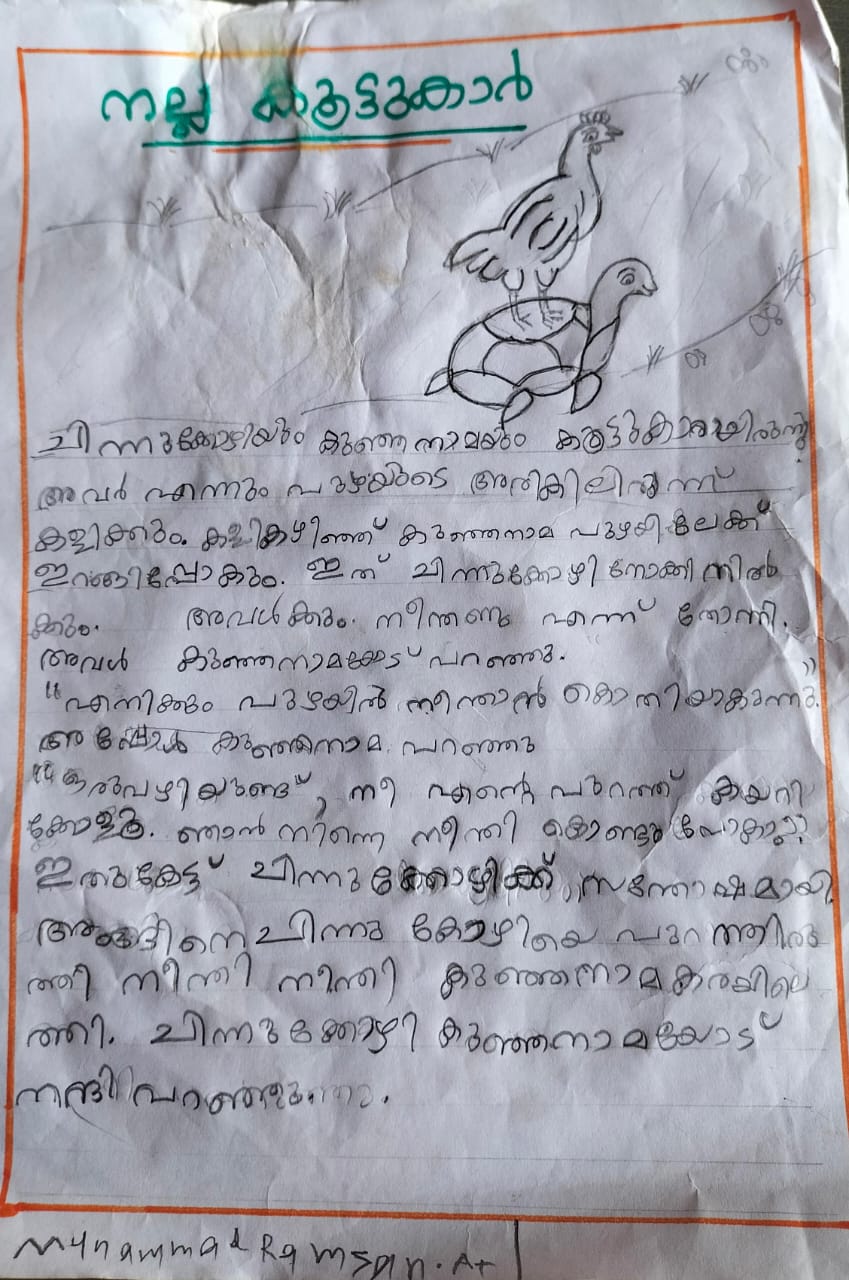 നല്ല കൂട്ടുകാർ
ചിന്നുക്കോഴിയും കുഞ്ഞനാമയും കൂട്ടുകാരായിരുന്നു
അവർ എന്നും പുഴയുടെ അരികിലിരുന്ന്
കളിക്കും. കളികഴിഞ്ഞ് കുഞ്ഞനാമ പുഴയിലേക്ക്
ഇറങ്ങിപ്പോകും. ഇത് ചിന്നുക്കോഴി നോക്കി നിൽ
ക്കും. അവൾക്കും നീന്തണം എന്ന് തോന്നി.
അവൾ കുഞ്ഞനാമക്കോട് പറഞ്ഞു.
“എനിക്കും പുഴയിൽ നീന്താൻ കൊതിയാകുന്നു.”
അപ്പോൾ കുഞ്ഞനാമ പറഞ്ഞു
“ഒരുവഴിയുണ്ട്, നീ എന്റെ പുറത്ത് കയറി
ക്കോളൂ. ഞാൻ നിന്നെ നീന്തി കൊണ്ടുപോകാം”
ഇതുകേട്ട് ചിന്നുക്കോഴിക്ക് സന്തോഷമായി.
അങ്ങിനെ ചിന്നു കോഴിയെ പുറത്തിരു
ത്തി നീന്തി നീന്തി കുഞ്ഞനാമ കരയിലെ
ത്തി. ചിന്നുക്കോഴി കുഞ്ഞനാമയോട്
നന്ദി പറഞ്ഞു.
Muhammad Ramsan. A+